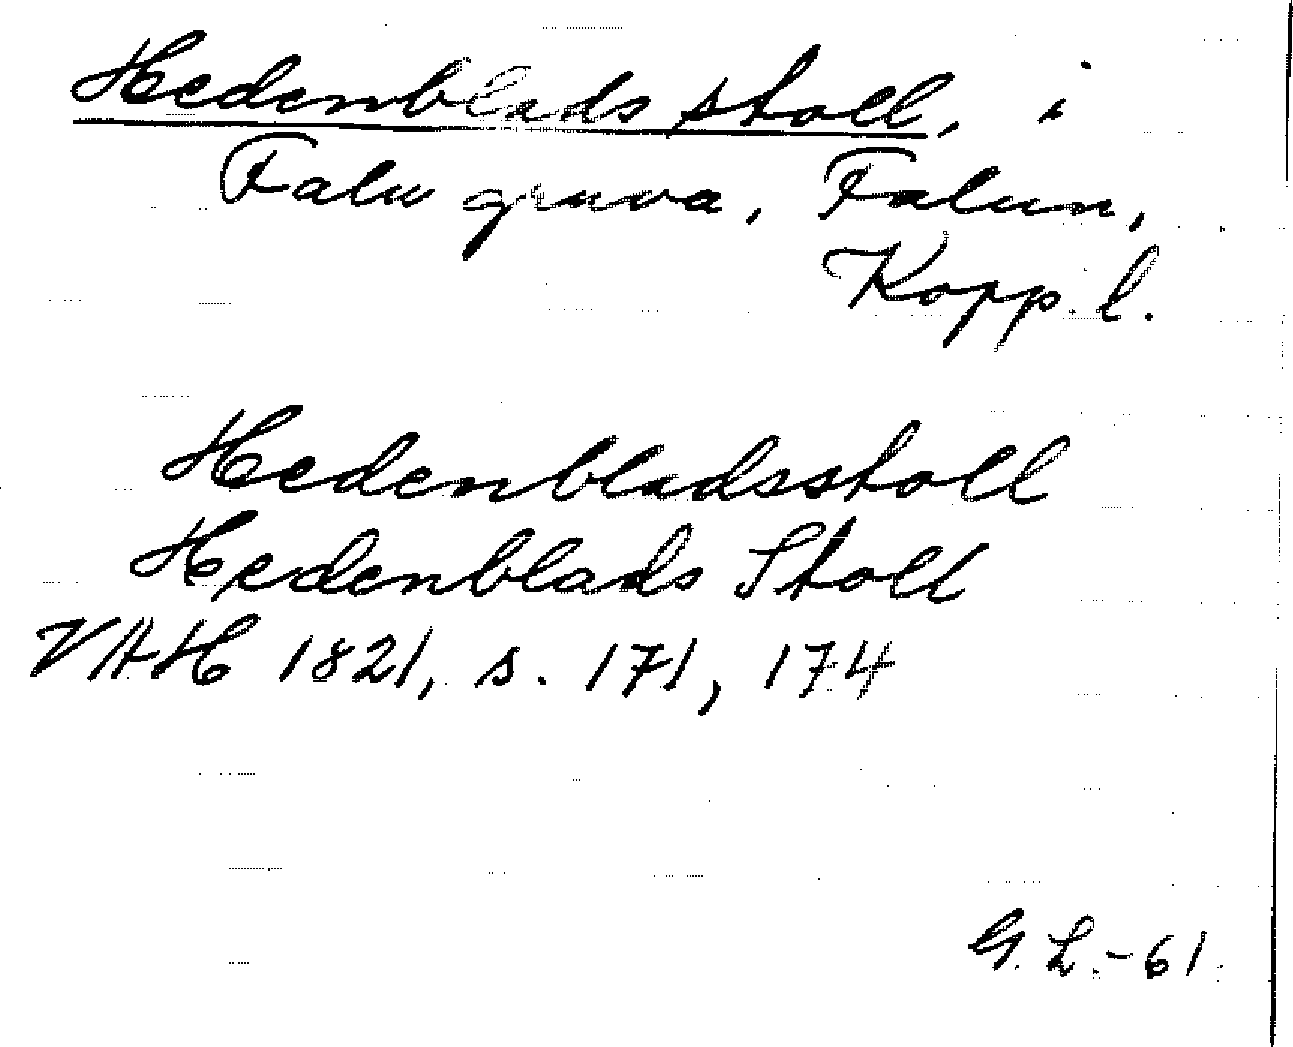 Hedenblads stoll, i
Falu gruva, Falun,
Kopp. l.
Hedenbladsstoll
Hedenblads Stoll
VAH 1821, s. 171, 174
G. L. - 61.